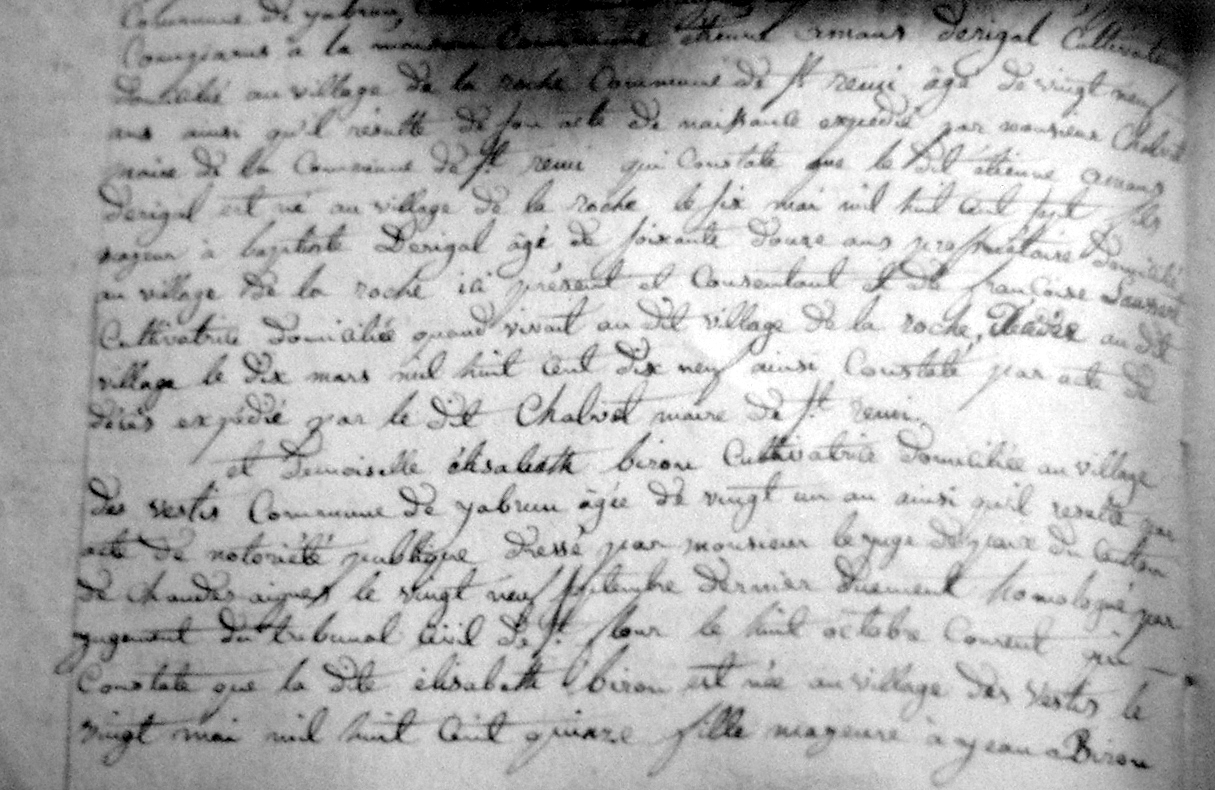 Commune de yabrun,
Comparus à la maison Commune étienne amans Derigal Cultivateur
domicilié au village de la roche Commune de St remi âgé de vingt neuf
ans ainsi qu'il résulte de son acte de naissance expédié par monsieur Chalvet
maire de la Commune de St remi qui Constate que le dit étienne amans
Derigal est né au village de la roche le six mai mil huit cent sept fils
majeur à baptiste Derigal âgé de soixante douze ans propriétaire domicilié
au village de la roche ici présent et Consentant et de françoise
Cultivatrice domiciliée quand vivait au dit village de la roche, Décédée au dit
village le dix mars mil huit cent dix neuf ainsi Constaté par acte de
décès expédié par le dit Chalvet maire de St remi.
et Demoiselle élisabeth biron Cultivatrice domiciliée au village
des vestis Commune de yabrun âgée de vingt un an ainsi qu'il résulte par
acte de notoriété publique dressé par monsieur le juge de paix du Canton
de chaudesaigues le vingt neuf septembre dernier duement homologué par
jugement du tribunal Civil de St flour le huit octobre Courent qui
Constate que la dite élisabeth biron est née au village des vestis le
vingt mai mil huit cent quinze fille majeure à jean Biron